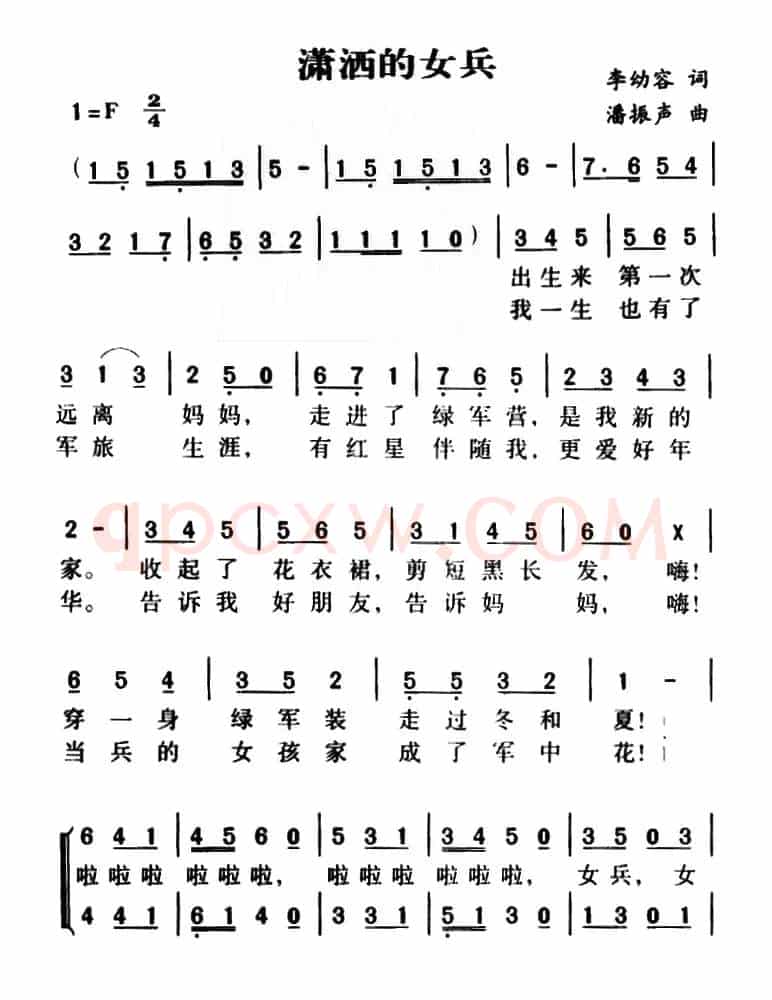 潇洒的女兵
李幼容 词
1=F 2/4
潘振声 曲
(1 5 1 5 1 3 | 5 - | 1 5 1 5 1 3 | 6 - | 7. 6 5 4 |
3 2 1 7 | 6 5 3 2 | 1 1 1 1 0) | 3 4 5 | 5 6 5 |
出生来 第一次
我一生 也有了
3 1 3 | 2 5 0 | 6 7 1 | 7 6 5 | 2 3 4 3 |
远离 妈妈, 走进了 绿军营, 是我新的
军旅 生涯, 有红星 伴随我, 更爱好年
2 - | 3 4 5 | 5 6 5 | 3 1 4 5 | 6 0 X |
qpcxw.com
家。 收起了 花衣裙, 剪短黑长 发, 嗨!
华。 告诉我 好朋友, 告诉妈 妈, 嗨!
6 5 4 | 3 5 2 | 5 5 3 2 | 1 - |
穿一身 绿军装 走过冬和 夏!
当兵的 女孩家 成了军中 花!
6 4 1 | 4 5 6 0 | 5 3 1 | 3 4 5 0 | 3 5 0 3 |
啦啦啦 啦啦啦, 啦啦啦 啦啦啦, 女兵, 女
4 4 1 | 6 1 4 0 | 3 3 1 | 5 1 3 0 | 1 3 0 1 |